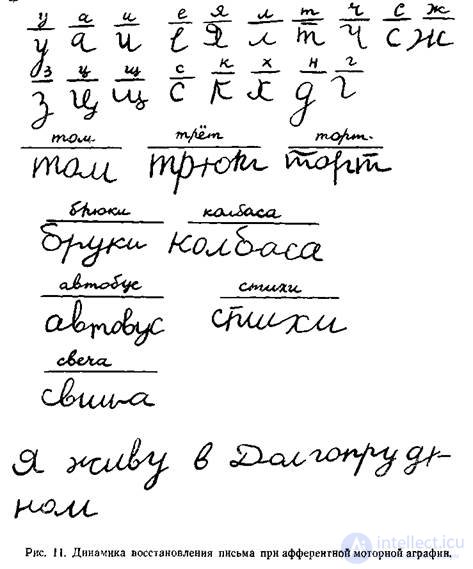 у а и е я л т ч с ж
у а и е я л т ч с ж
з ц щ с к х н г
з ц щ с к х д г
том. трёт торт.
том трюк торт
брюки колбаса
бруки колбаса
автобус стихи
автовус стихи
свеча
свиша
Я живу в Долгопруд-
ном
Рис. 11. Динамика восстановления письма при афферентной моторной аграфии.
intellect.icu